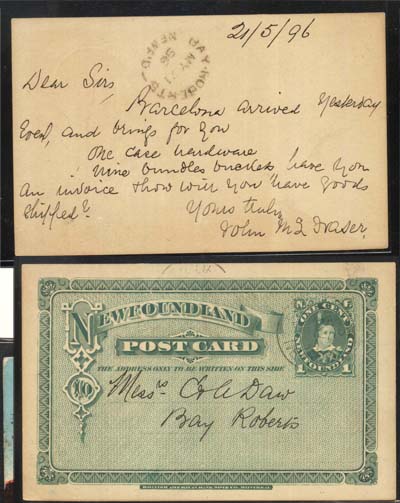 21/5/96
BAY-ROBERTS
NEWFD
MY 21
96
Dear Sirs,
Barcelona arrived yesterday
Even, and brings for you
One case hardware
Nine bundles buckets, have you
an invoice & how will you have goods
shipped?
Yours truly
John
NEWFOUNDLAND
POST CARD
THE ADDRESS ONLY TO BE WRITTEN ON THIS SIDE
ONE CENT
NEWFOUNDLAND
1 1
Messrs C & A Daw
Bay Roberts
BRITISH AMERICAN BANK NOTE CO. MONTREAL